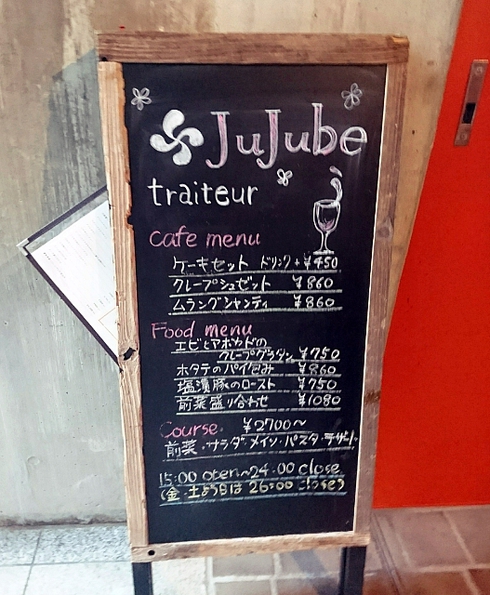 JuJube
traiteur
Cafe menu
ケーキセット ドリンク+¥450
クレープシュゼット ¥860
ムラングシャンティ ¥860
Food menu
エビとアボカドの
クレープグラタン ¥750
ホタテのパイ包み ¥860
塩漬豚のロースト ¥750
前菜盛り合わせ ¥1080
Course ¥2700〜
前菜・サラダ・メイン・パスタ・デザート
15:00 open〜24:00 close
(金・土曜日は 26:00 close)